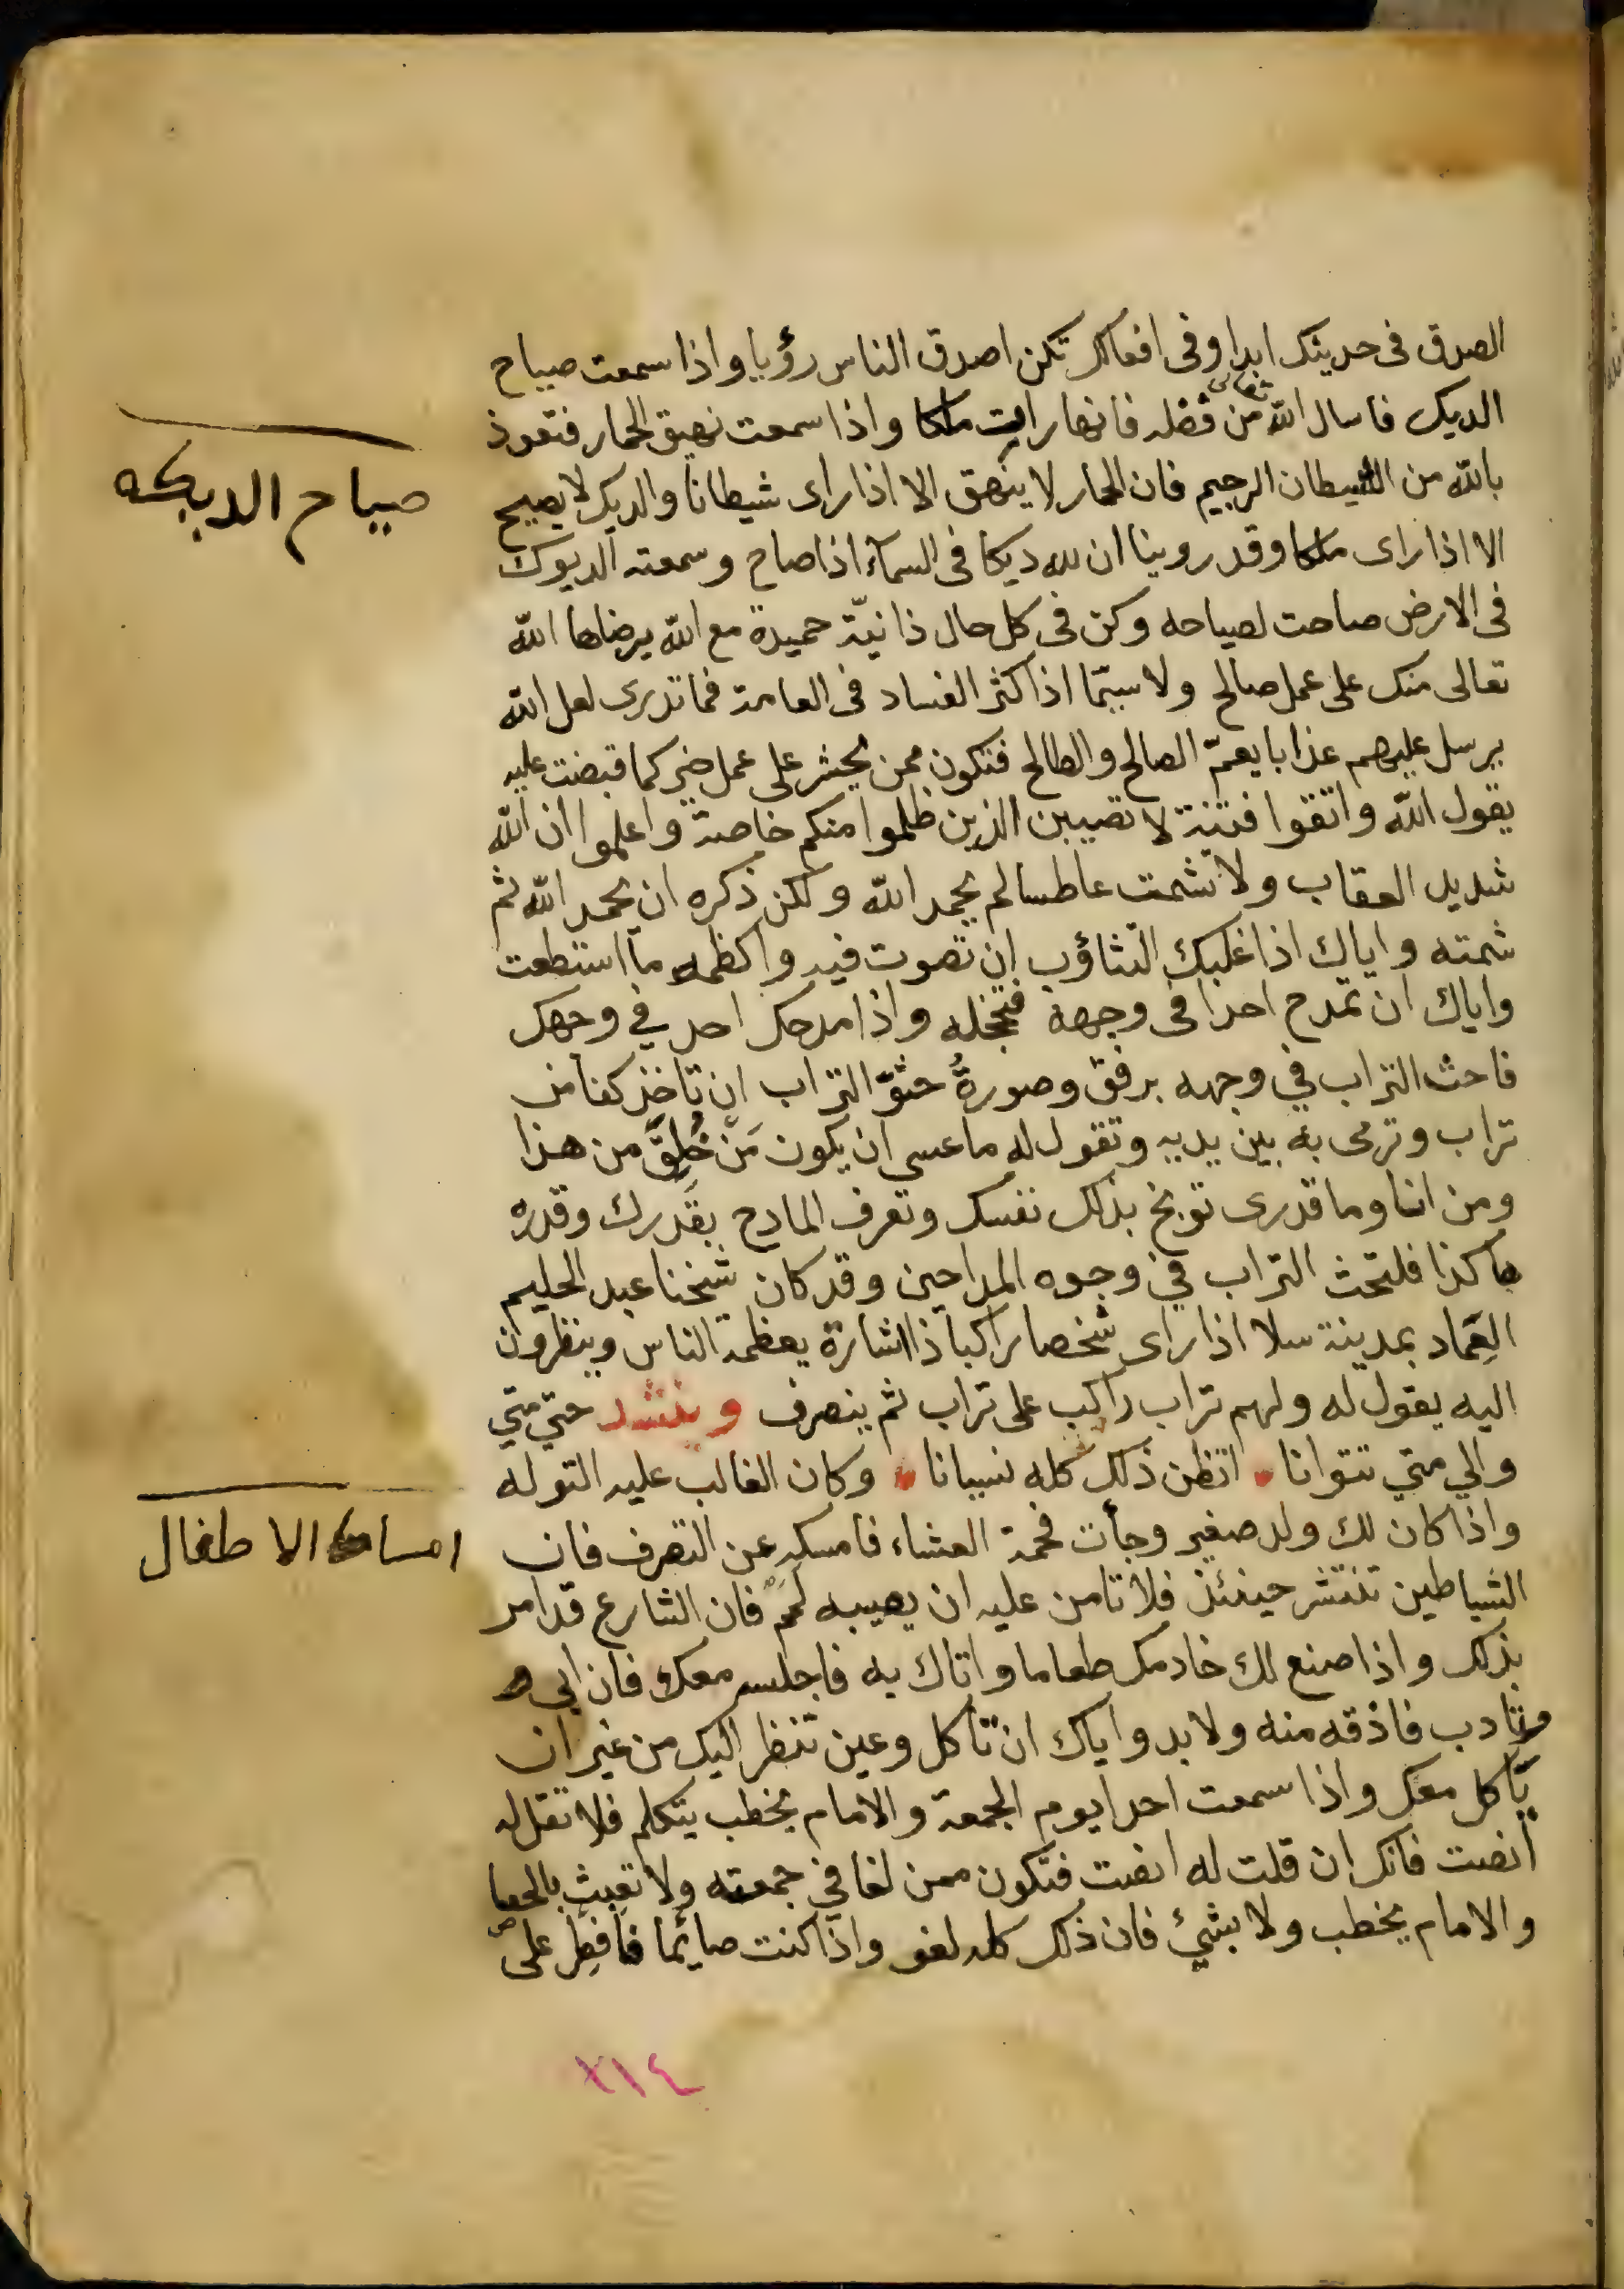 الصدق فى حديثك ابدا وفى افعالك تكن اصدق الناس رؤيا واذا سمعت صياح
الديك فاسال الله تعالى من فضله فانها رات ملكا واذا سمعت نهيق الحمار فتعوذ
بالله من الشيطان الرجيم فان الحمار لا ينهق الا اذا راى شيطانا والديك لا يصيح
صياح الديكه
الا اذا راى ملكا وقد روينا ان لله ديكا فى السماء اذا صاح وسمعته الديوك
فى الارض صاحت لصياحه وكن فى كل حال ذا نيّة حميدة مع الله يرضاها الله
تعالى منك على عمل صالح ولا سيّما اذا كثر الفساد فى العامة فما تدرى لعل الله
يرسل عليهم عذابا يعمّ الصالح والطالح فتكون ممن يحشر على عمل خير كما قبضت عليه
يقول الله واتقوا فتنة لا تصيبن الذين ظلموا منكم خاصة واعلموا ان الله
شديد العقاب ولا تشمت عاطسا لم يحمد الله ولكن ذكره ان يحمد الله ثم
شمته واياك اذا غلبك التثاؤب ان تصوت فيه واكظمه ما استطعت
واياك ان تمدح احدا فى وجهه فتخجله واذا مدحك احد في وجهك
فاحث التراب في وجهه برفق وصورةُ حثوّ التراب ان تاخذ كفا من
تراب وترمى به بين يديه وتقول له ما عسى ان يكون مَنْ خُلِقَ من هذا
ومن انا وما قدرى توبخ بذلك نفسك وتعرف المادح بقَدرك وقدره
هاكذا فلتحث التراب في وجوه المداحين وقد كان شيخنا عبد الحليم
العِمّاد بمدينة سلا اذا راى شخصا راكبا ذا اشارة يعظمه الناس وينظرون
اليه يقول له ولهم تراب راكب على تراب ثم ينصرف وينشد حتي متي
والي متي تتوانا اتظن ذلك كله نسيانا وكان الغالب عليه التوله
واذا كان لك ولد صغير وجأت فحمة العشاء فامسكه عن التصرف فان
امساك الاطفال
الشياطين تنتشر حينئذ فلا تامن عليه ان يصيبه لَمَمٌ فان الشارع قد امر
بذلك واذا صنع لك خادمك طعاما واتاك به فاجلسه معك فان ابى
وتادب فاذقه منه ولا بد واياك ان تاكل وعين تنظر اليك من غير ان
ياكل معك واذا سمعت احدا يوم الجمعة والامام يخطب يتكلم فلا تقل له
انصت فانك ان قلت له انصت فتكون ممن لغا في جمعته ولا تعبث بالحصا
والامام يخطب ولا بشئ فان ذلك كله لغو واذا كنت صايما فافطِر على
٣١٤